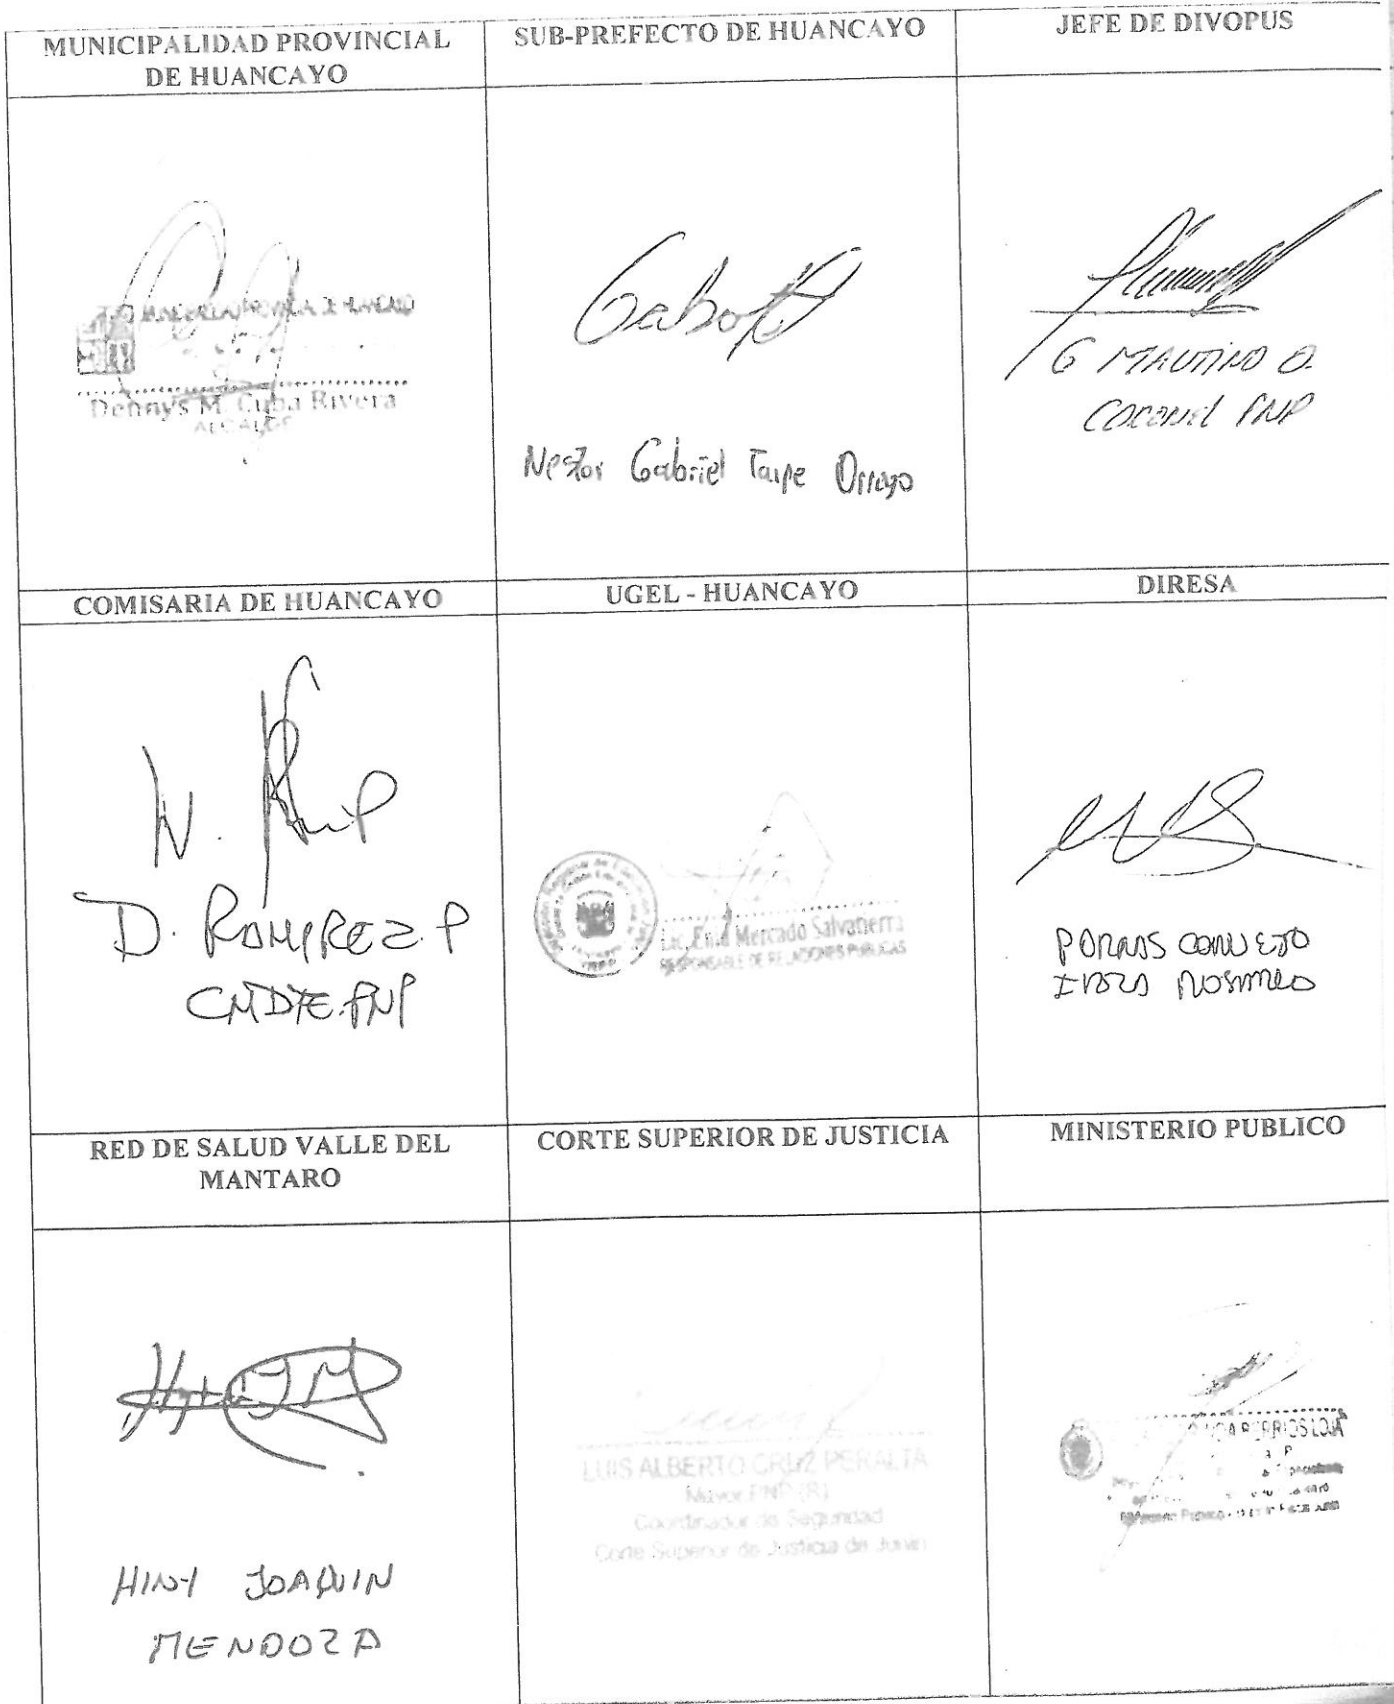 MUNICIPALIDAD PROVINCIAL
DE HUANCAYO
SUB-PREFECTO DE HUANCAYO
JEFE DE DIVOPUS
Dennys M. Cuba Rivera
ALCALDE
Nestor Gabriel Taipe Orroyo
G MAUTINO O.
CORONEL PNP
COMISARIA DE HUANCAYO
UGEL - HUANCAYO
DIRESA
D. RAMIREZ. P
CMDTE. PNP
Mercado Salvatierra
RESPONSABLE DE RELACIONES PUBLICAS
RED DE SALUD VALLE DEL
MANTARO
CORTE SUPERIOR DE JUSTICIA
MINISTERIO PUBLICO
JOAQUIN
MENDOZA
LUIS ALBERTO CRUZ PERALTA
Mayor PNP (R)
Coordinador de Seguridad
Corte Superior de Justicia de Junin
BERRIOS LOJA